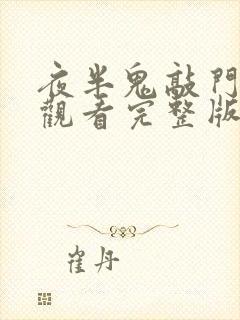 夜半鬼敲門
觀看完整版
崔丹